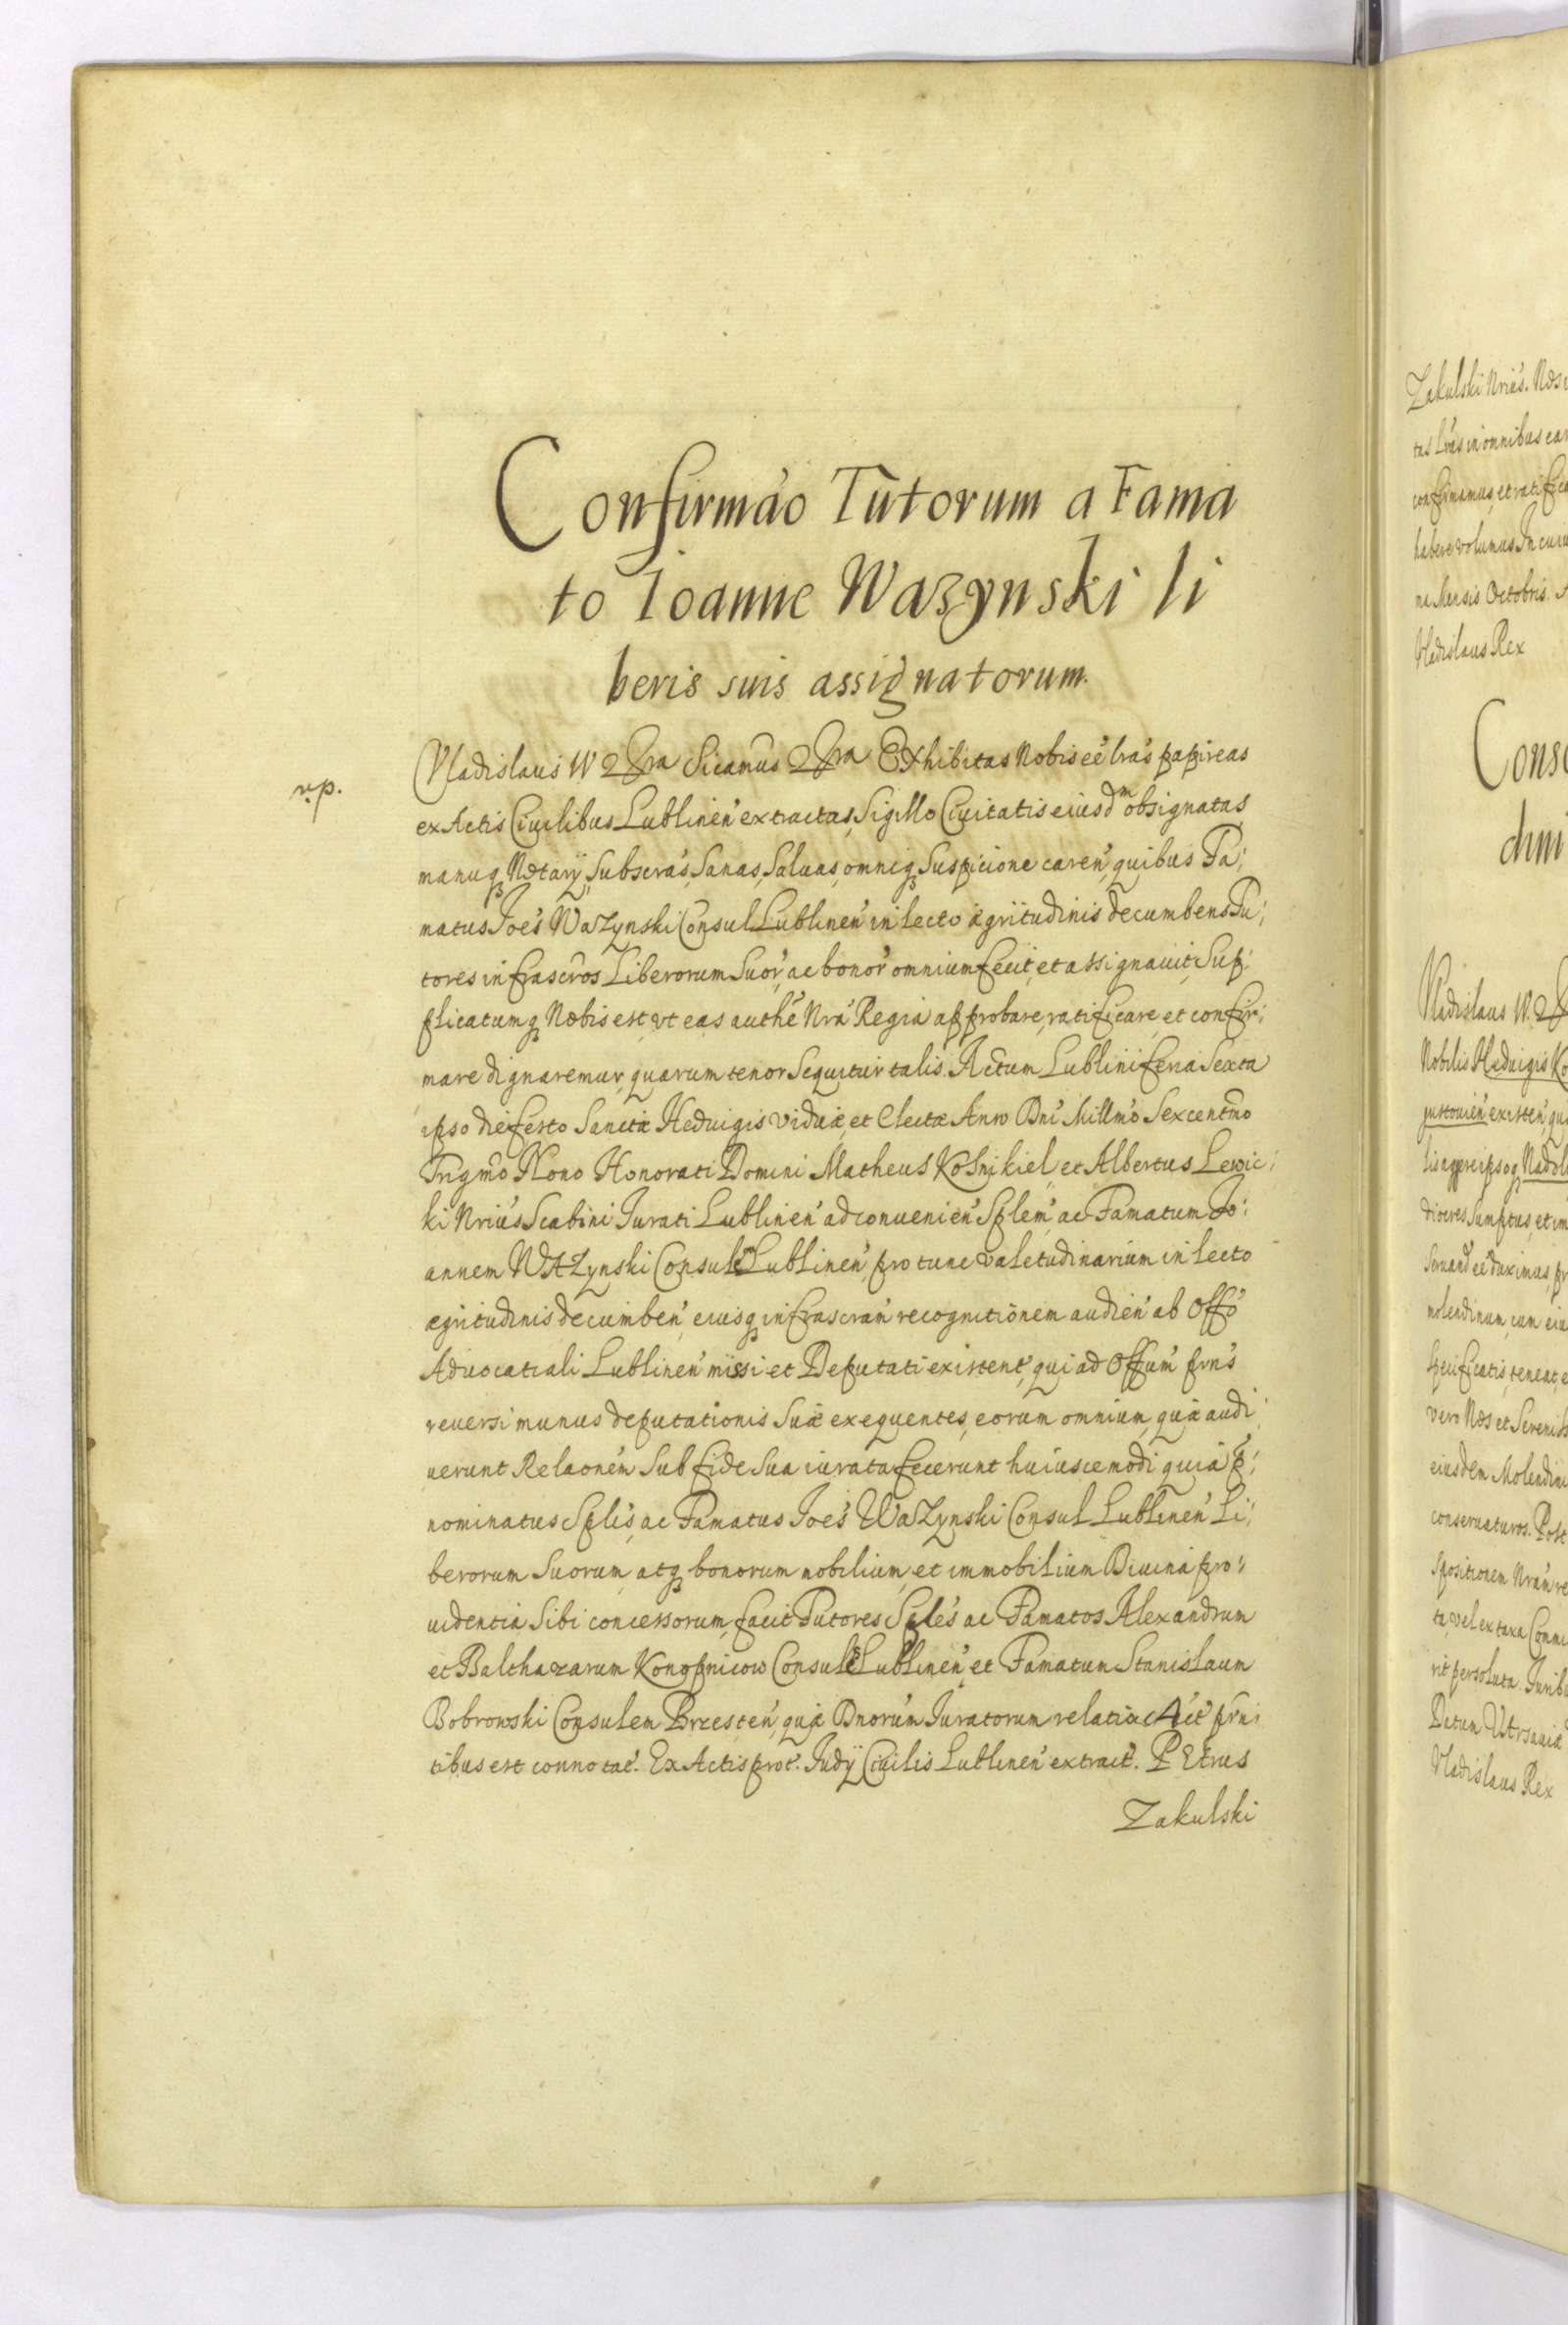 Confirmaó Tutorum a Fama
to Ioanne Wazynski li
beris suis assignatorum.
n.p.
Vladislaus IV Sicamus Exhibitas Nobis eé lrás papireas
ex Actis Ciuilibus Lublineń extractas, Sigillo Ciuitatis eiusdm obsignatas
manuq Notarÿ Subscrás, Sanas, Saluas, omniq Suspicione careń, quibus Fa:
matus Joés Wazynski Consul Lublineń in lecto ægritudinis decumbens Tu:
tores infrascros Liberorum Suoŕ, ac bonoŕ omnium fecit, et assignauit, Sup:
plicatumq Nobis est, vt eas authé Nrá Regia approbare, ratificare, et confir:
mare dignaremur, quarum tenor Sequitur talis. Actum Lublini feria Sexta
ipso die festo Sanctæ Heduigis viduæ, et Electæ Anno Dní Millmo Sexcentmo
Trigmo Nono Honorati Domini Matheus Kosnikiel, et Albertus Lewic:
ki Nriús Scabini Iurati Lublineń ad conuenień Splem, ac Famatum Jo:
annem WAZynski Consulem Lublineń, pro tunc valetudinarium in lecto
ægritudinis decumbeń, eiusq infrascrań recognitionem audień ab Offó
Aduocatiali Lublineń missi et Deputati existent, qui ad Offum prns
reuersi munus deputationis Suæ exequentes, eorum omnium, quæ audi
uerunt Relaoném Sub fide Sua iurata fecerunt huiuscemodi, quia p:
nominatus Splis, ac Famatus Joés Wazynski Consul Lublineń Li:
berorum Suorum, atq bonorum mobilium, et immobilium Diuina pro:
uidentia Sibi concessorum, facit Tutores Splés ac Famatos Alexandrum
et Balthazarum Konopnicow Consules Lublineń, et Famatum Stanislaum
Bobrowski Consulem Brzesteń, quæ Dnorúm Iuratorum relatio Actis prn:
tibus est connotat. Ex Actis prot. Iudÿ Ciuilis Lublineń extract. PEtrus
Zakulski
Zakulski Nriús. Nos
tas Lrás in omnibus ear
confirmamus, et ratifica
habere volumus. In cuiu
na Mensis Octobris.
Vladislaus Rex
Conse
dini
Vladislaus IV.
Nobilis Heduigis Ko
gustouień existeń, qu
molendinum, cum eiu
specificatis, teneat, e
vero Nos et Sereniss
eiusdem Molendini
conseruaturos. Post
spositionem Nrám re
ta, vel ex taxa Commi
rit persoluta. Iurib
Datum Varsauiæ
Vladislaus Rex